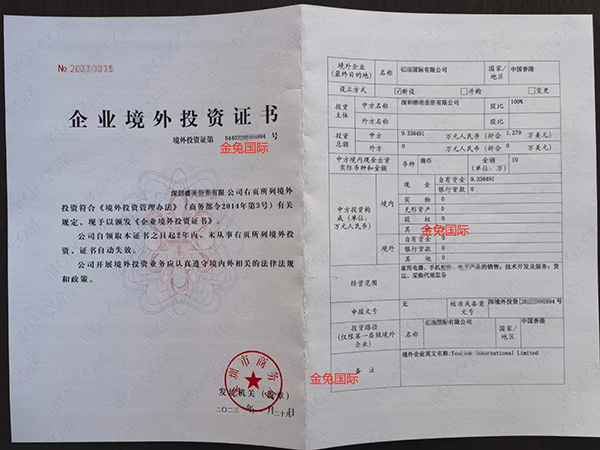 企业境外投资证书
境外投资证第 号
金兔国际
有限公司右页所列境外
投资符合《境外投资管理办法》(商务部令2014年第3号)有关
规定,现予以颁发《企业境外投资证书》。
公司自领取本证书之日起2年内,未从事右页所列境外投
资,证书自动失效。
公司开展境外投资业务应认真遵守境内外相关的法律法规
和政策。
深圳市商务局
发证机关(盖章)
二〇二三 年 月 二十 日
境外企业(最终目的地) 名称 国际有限公司 国家/地区 中国香港
设立方式 ☑新设 □并购 □变更
投资主体 中方名称 深圳 有限公司 股比 100%
外方名称 股比
投资总额 中方 9.338491 万元人民币(折合 1.279 万美元)
外方 0 万元人民币(折合 0 万美元)
中方境内现金出资实际币种和金额 币种 港币 金额(单位:万) 10
中方投资构成(单位:万元人民币) 境内 现金 自有资金 9.338491
银行贷款 0
实物 0
无形资产 0
股权 0
其 0
金兔国际
境外 自有资金 0
银行贷款 0
其他 0
经营范围 家用电器、手机 的销售;技术开发及服务;货
运、采购代理服务
申报文号 无 核准或备案文号 深境外投资 号
投资路径(仅限第一层级境外企业) 名称 国际有限公司 国家/地区 中国香港
备注 境外企业英文名称: International Limited
金兔国际